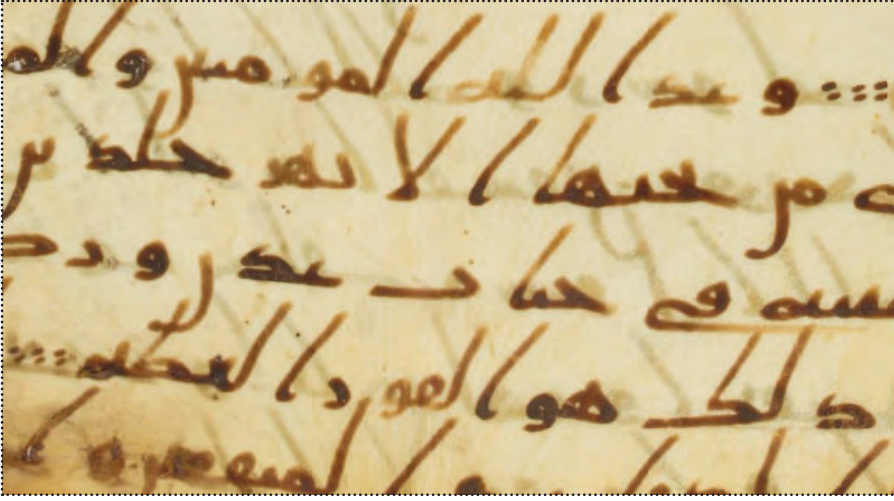 وعد الله المومنين والمو
من تحتها الانهر خلدين
طيبه في جنات عدن ورضو
ذلك هو الفوز العظيم
المنفقين و